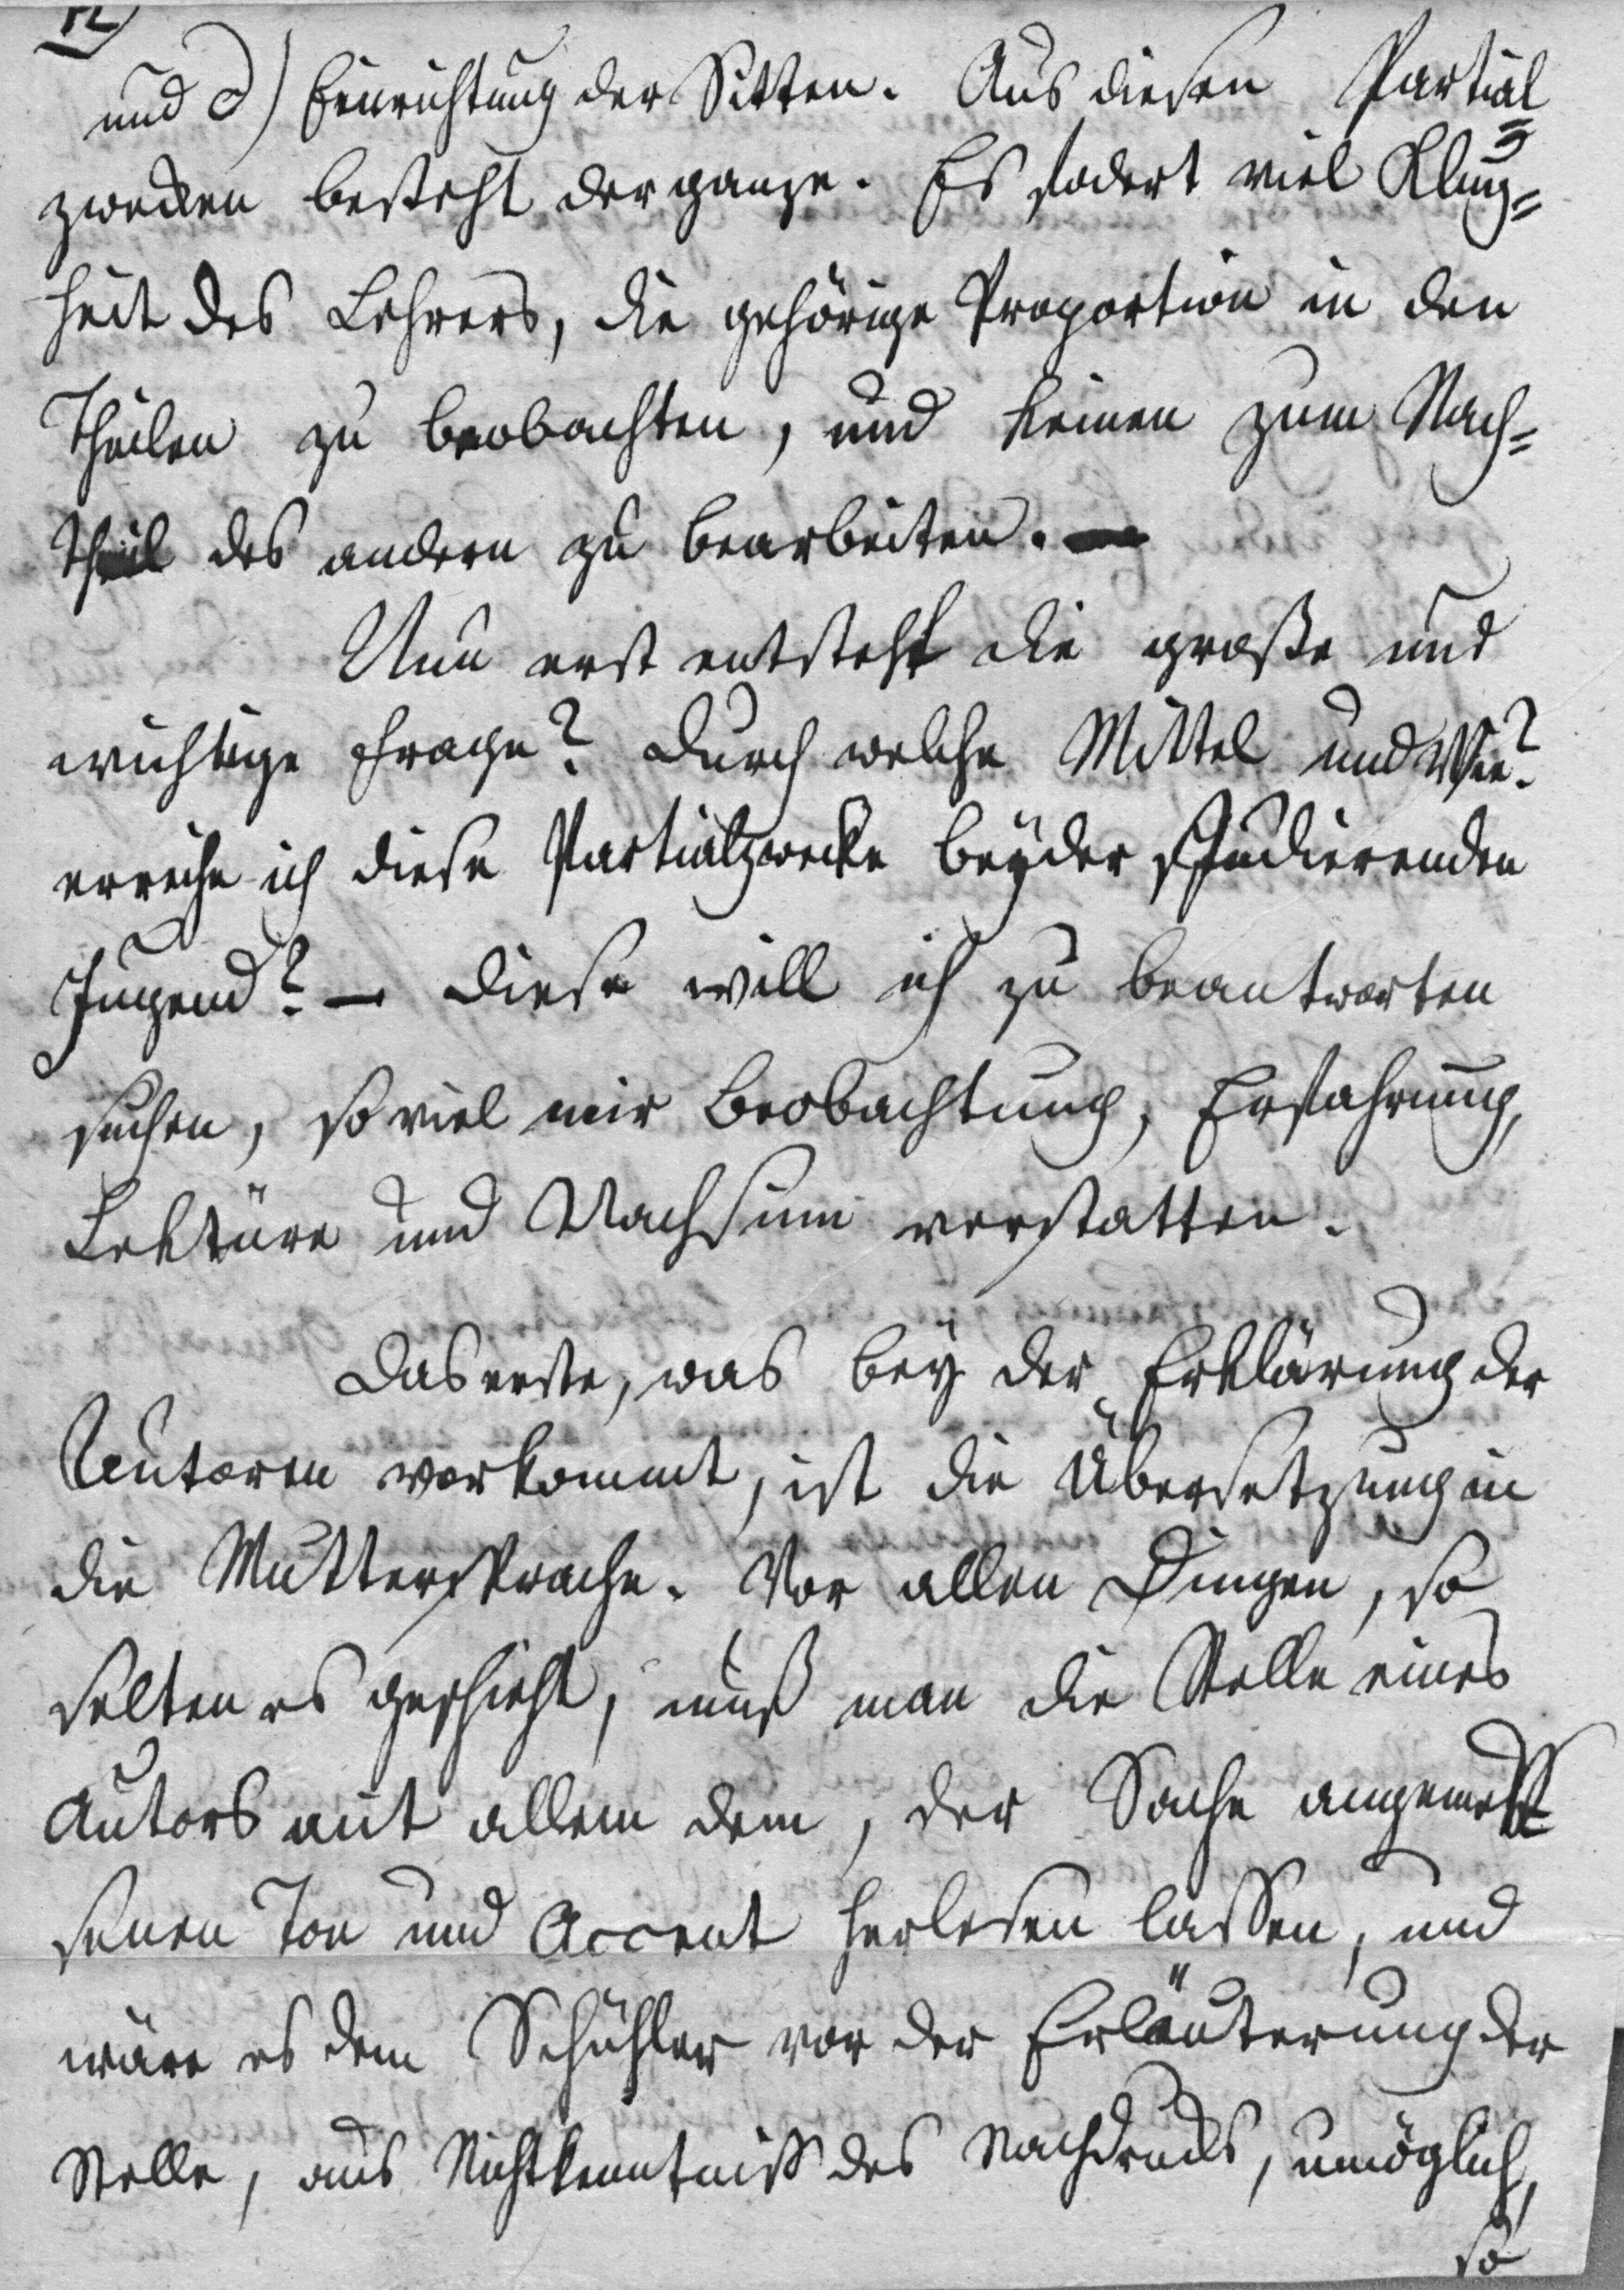 und d) Einrichtung der Sitten. Aus diesen Partial=
zwecken besteht der ganze. Es fodert viel Klug=
heit des Lehrers, die gehörige Proportion in den
Theilen zu beobachten, und keinen zum Nach=
theil des andern zu bearbeiten. —
Nun erst entsteht die große und
wichtige Frage? durch welche Mittel und Wie?
erreiche ich diese Partialzwecke bey der studierenden
Jugend? — Diese will ich zu beantworten
suchen, so viel mir Beobachtung, Erfahrung,
Lektüre und Nachsinn verstatten.
Das erste, was bey der Erklärung der
Autoren vorkommt, ist die Übersetzung in
die Muttersprache. Vor allen Dingen, so
selten es geschieht, muß man die Stelle eines
Autors mit allem dem, der Sache angemess
senen Ton und Accent herlesen lassen, und
wäre es dem Schühler vor der Erläuterung der
Stelle, aus Nichtkenntniß des Nachdrucks, unmöglich,
so